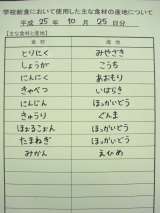 学校給食において使用した主な食材の産地について
平成 25 年 10 月 25 日分
【主な食材と産地】
食材 産地
とりにく みやざき
しょうが こうち
にんにく あおもり
きゃべつ いばらき
にんじん ほっかいどう
きゅうり ぐんま
ほっかいどう
たまねぎ ほっかいどう
みかん えひめ